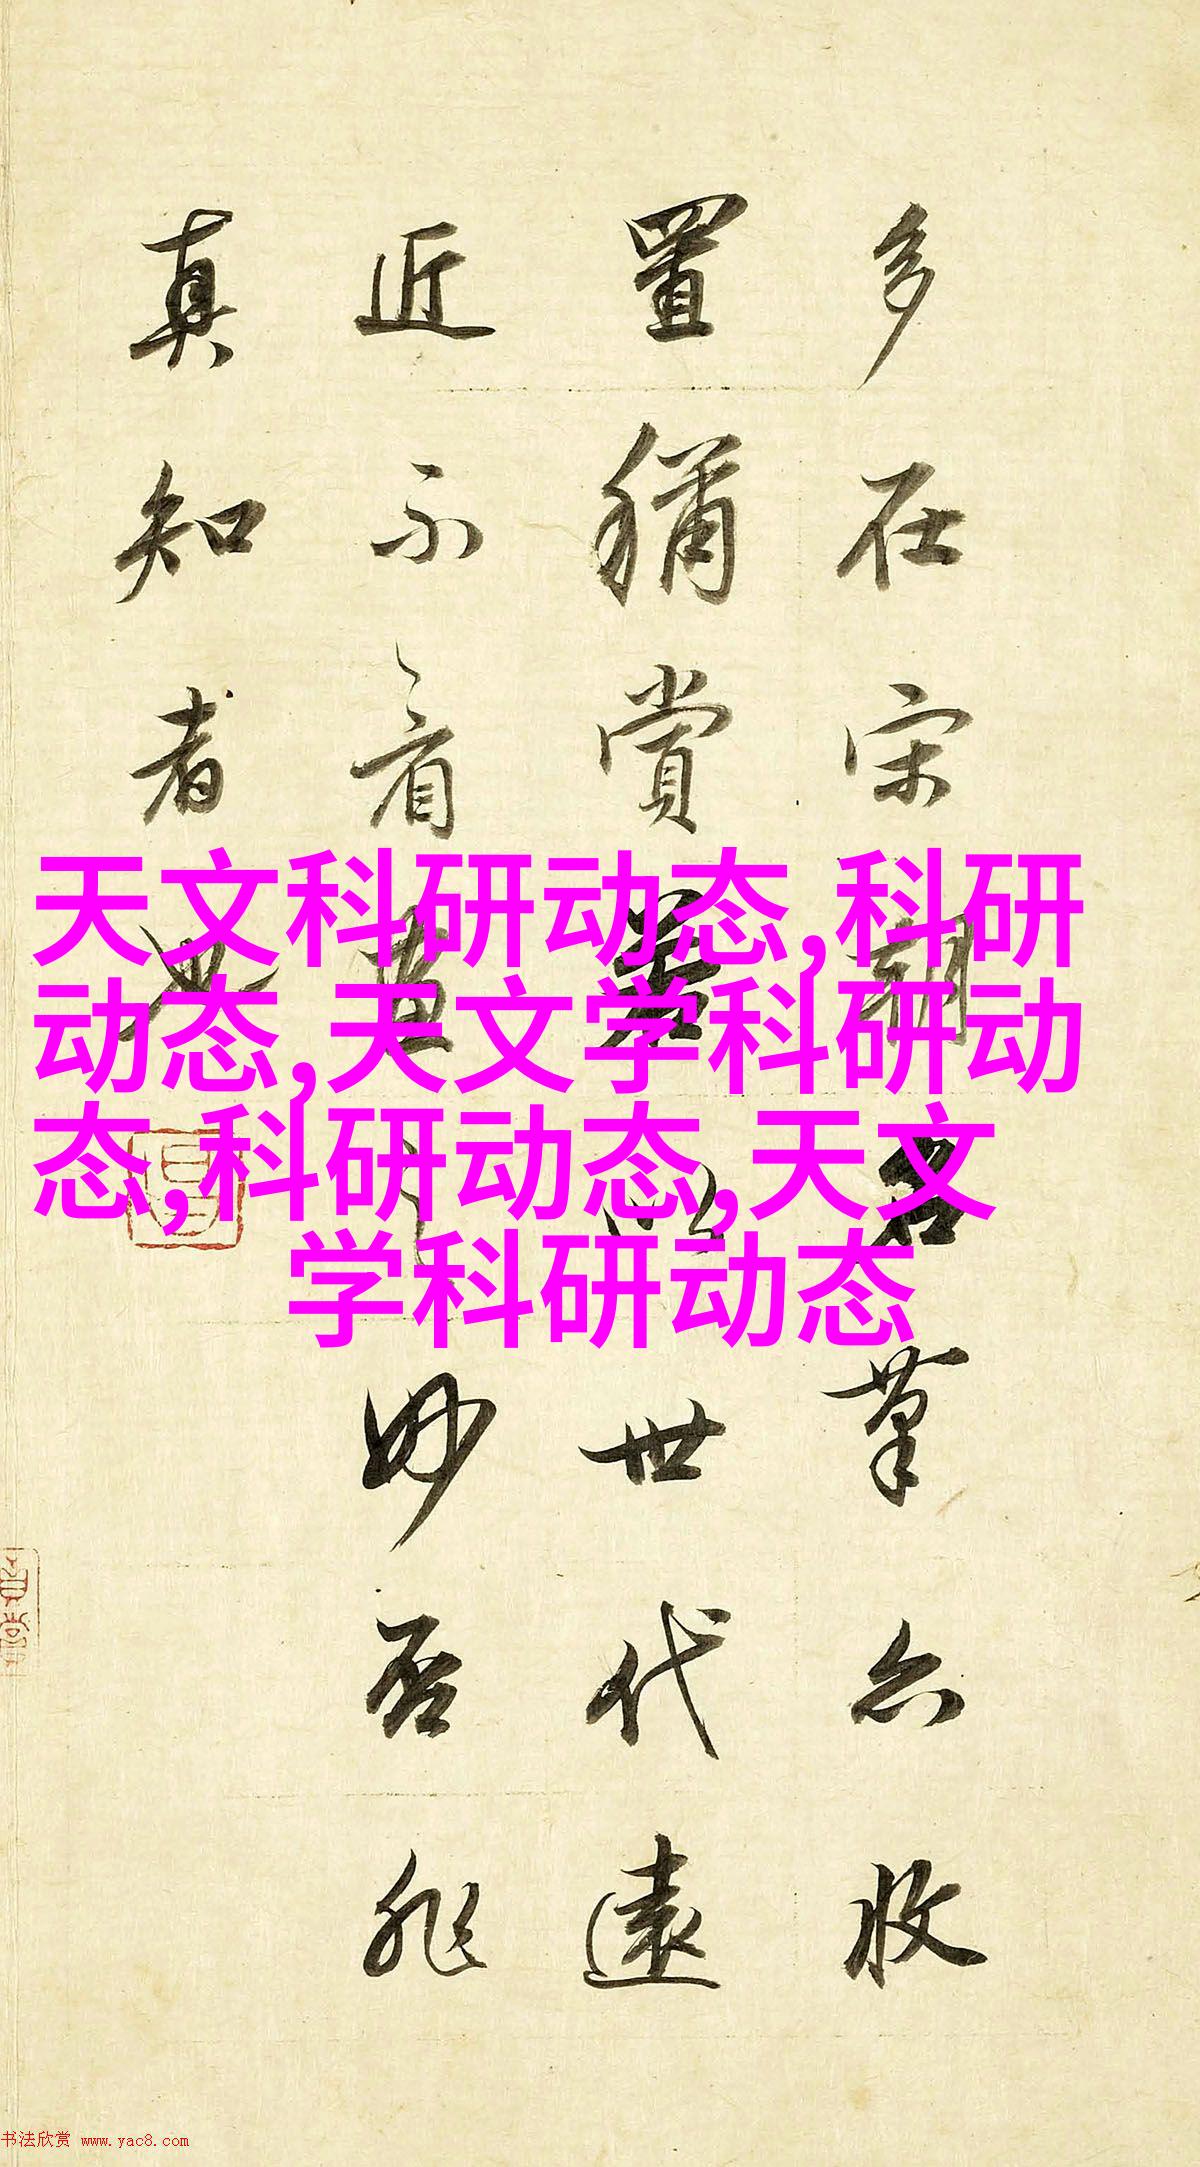 多在宋朝名筆亦收
置稱賞以世代遠
近不看畫之妙否非
真知者也
天文科研动态,科研
动态,天文学科研动
态,科研动态,天文
学科研动态
书法欣赏 www.yac8.com